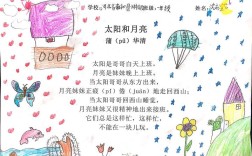 学校:
班级:
姓名:
太阳和月亮
蒲(pú)华清
太阳是哥哥白天上班,
月亮是妹妹晚上上班。
当太阳哥哥从东方出来,
月亮妹妹正疲(pí)倦(juàn)地走回西山;
当太阳哥哥回西山睡觉,
月亮妹妹又用精神地出来接班。
它们总是这样忙,这样忙,
不能在一块儿玩。